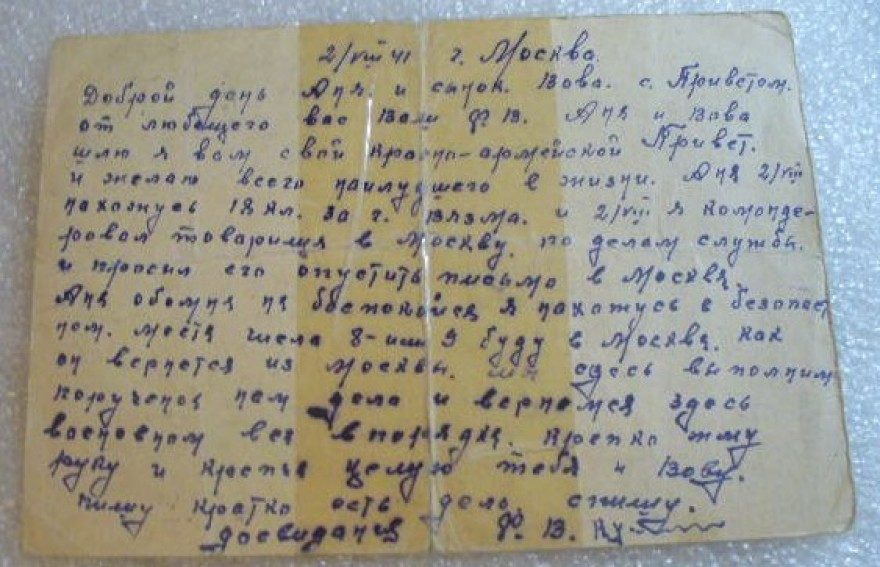 2/VIII 41 г. Москва.
Доброй день Аня. и сынок. Вова. с. Приветом.
от любещего вас Вали Ф. В. Аня и Вова
шлю я вам свой красно-армейской Привет.
и желаю всего наилудшего в жизни. Аня 2/VIII
нахожусь 18 кл. за г. Вязма. и 2/VIII я команде-
ровал товарища в Москву. по делам службы.
и просил его опустить письмо в Москвя
Аня обомня на боспокойся я нахожусь в безопаст
ном. местя числа 8-или 9 буду в Москвя. как
он вернется из Москвы. мы сдесь выполним
порученоя нам дела и вернемся здесь
восновном вся в порядкя. Крепко жму
руку и крепче целую тебя и Вову.
пишу кратко ость дела спишу.
досвидания Ф. В.